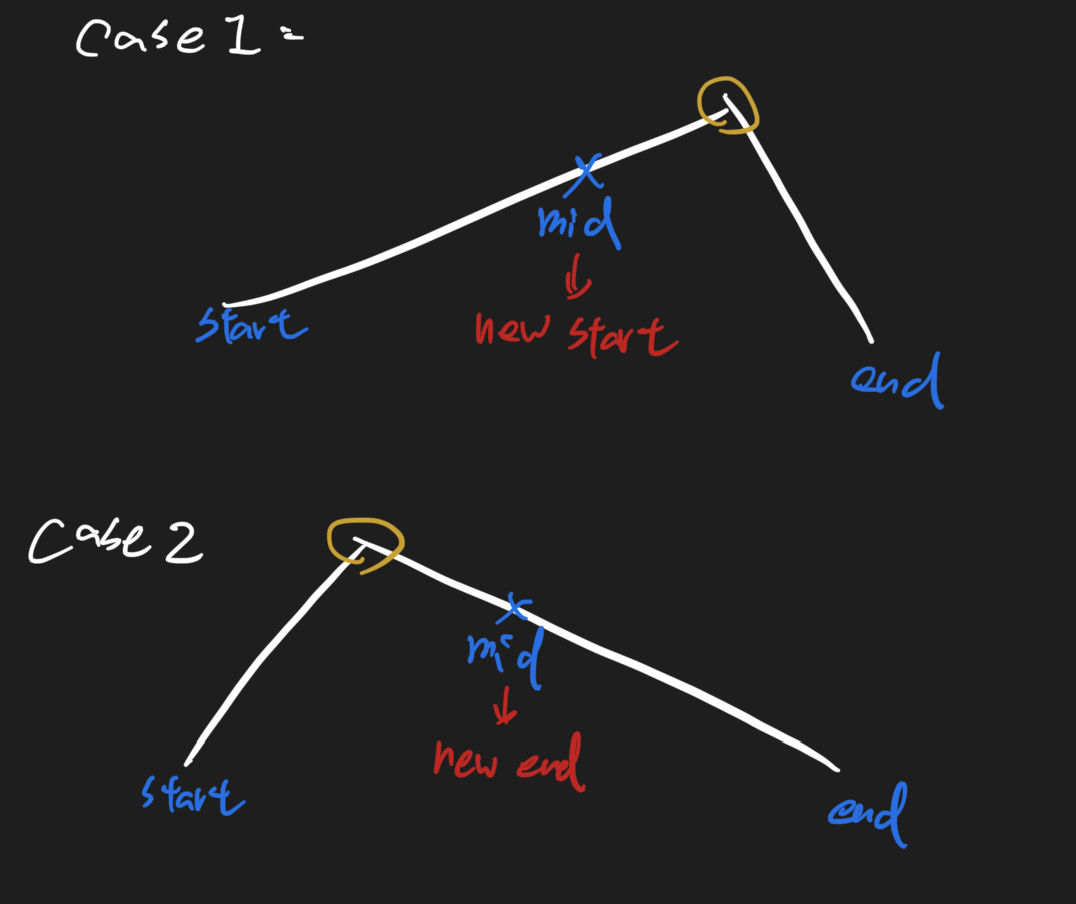 Case 1 =
mid
start
new start
end
Case 2
mid
new end
start
end